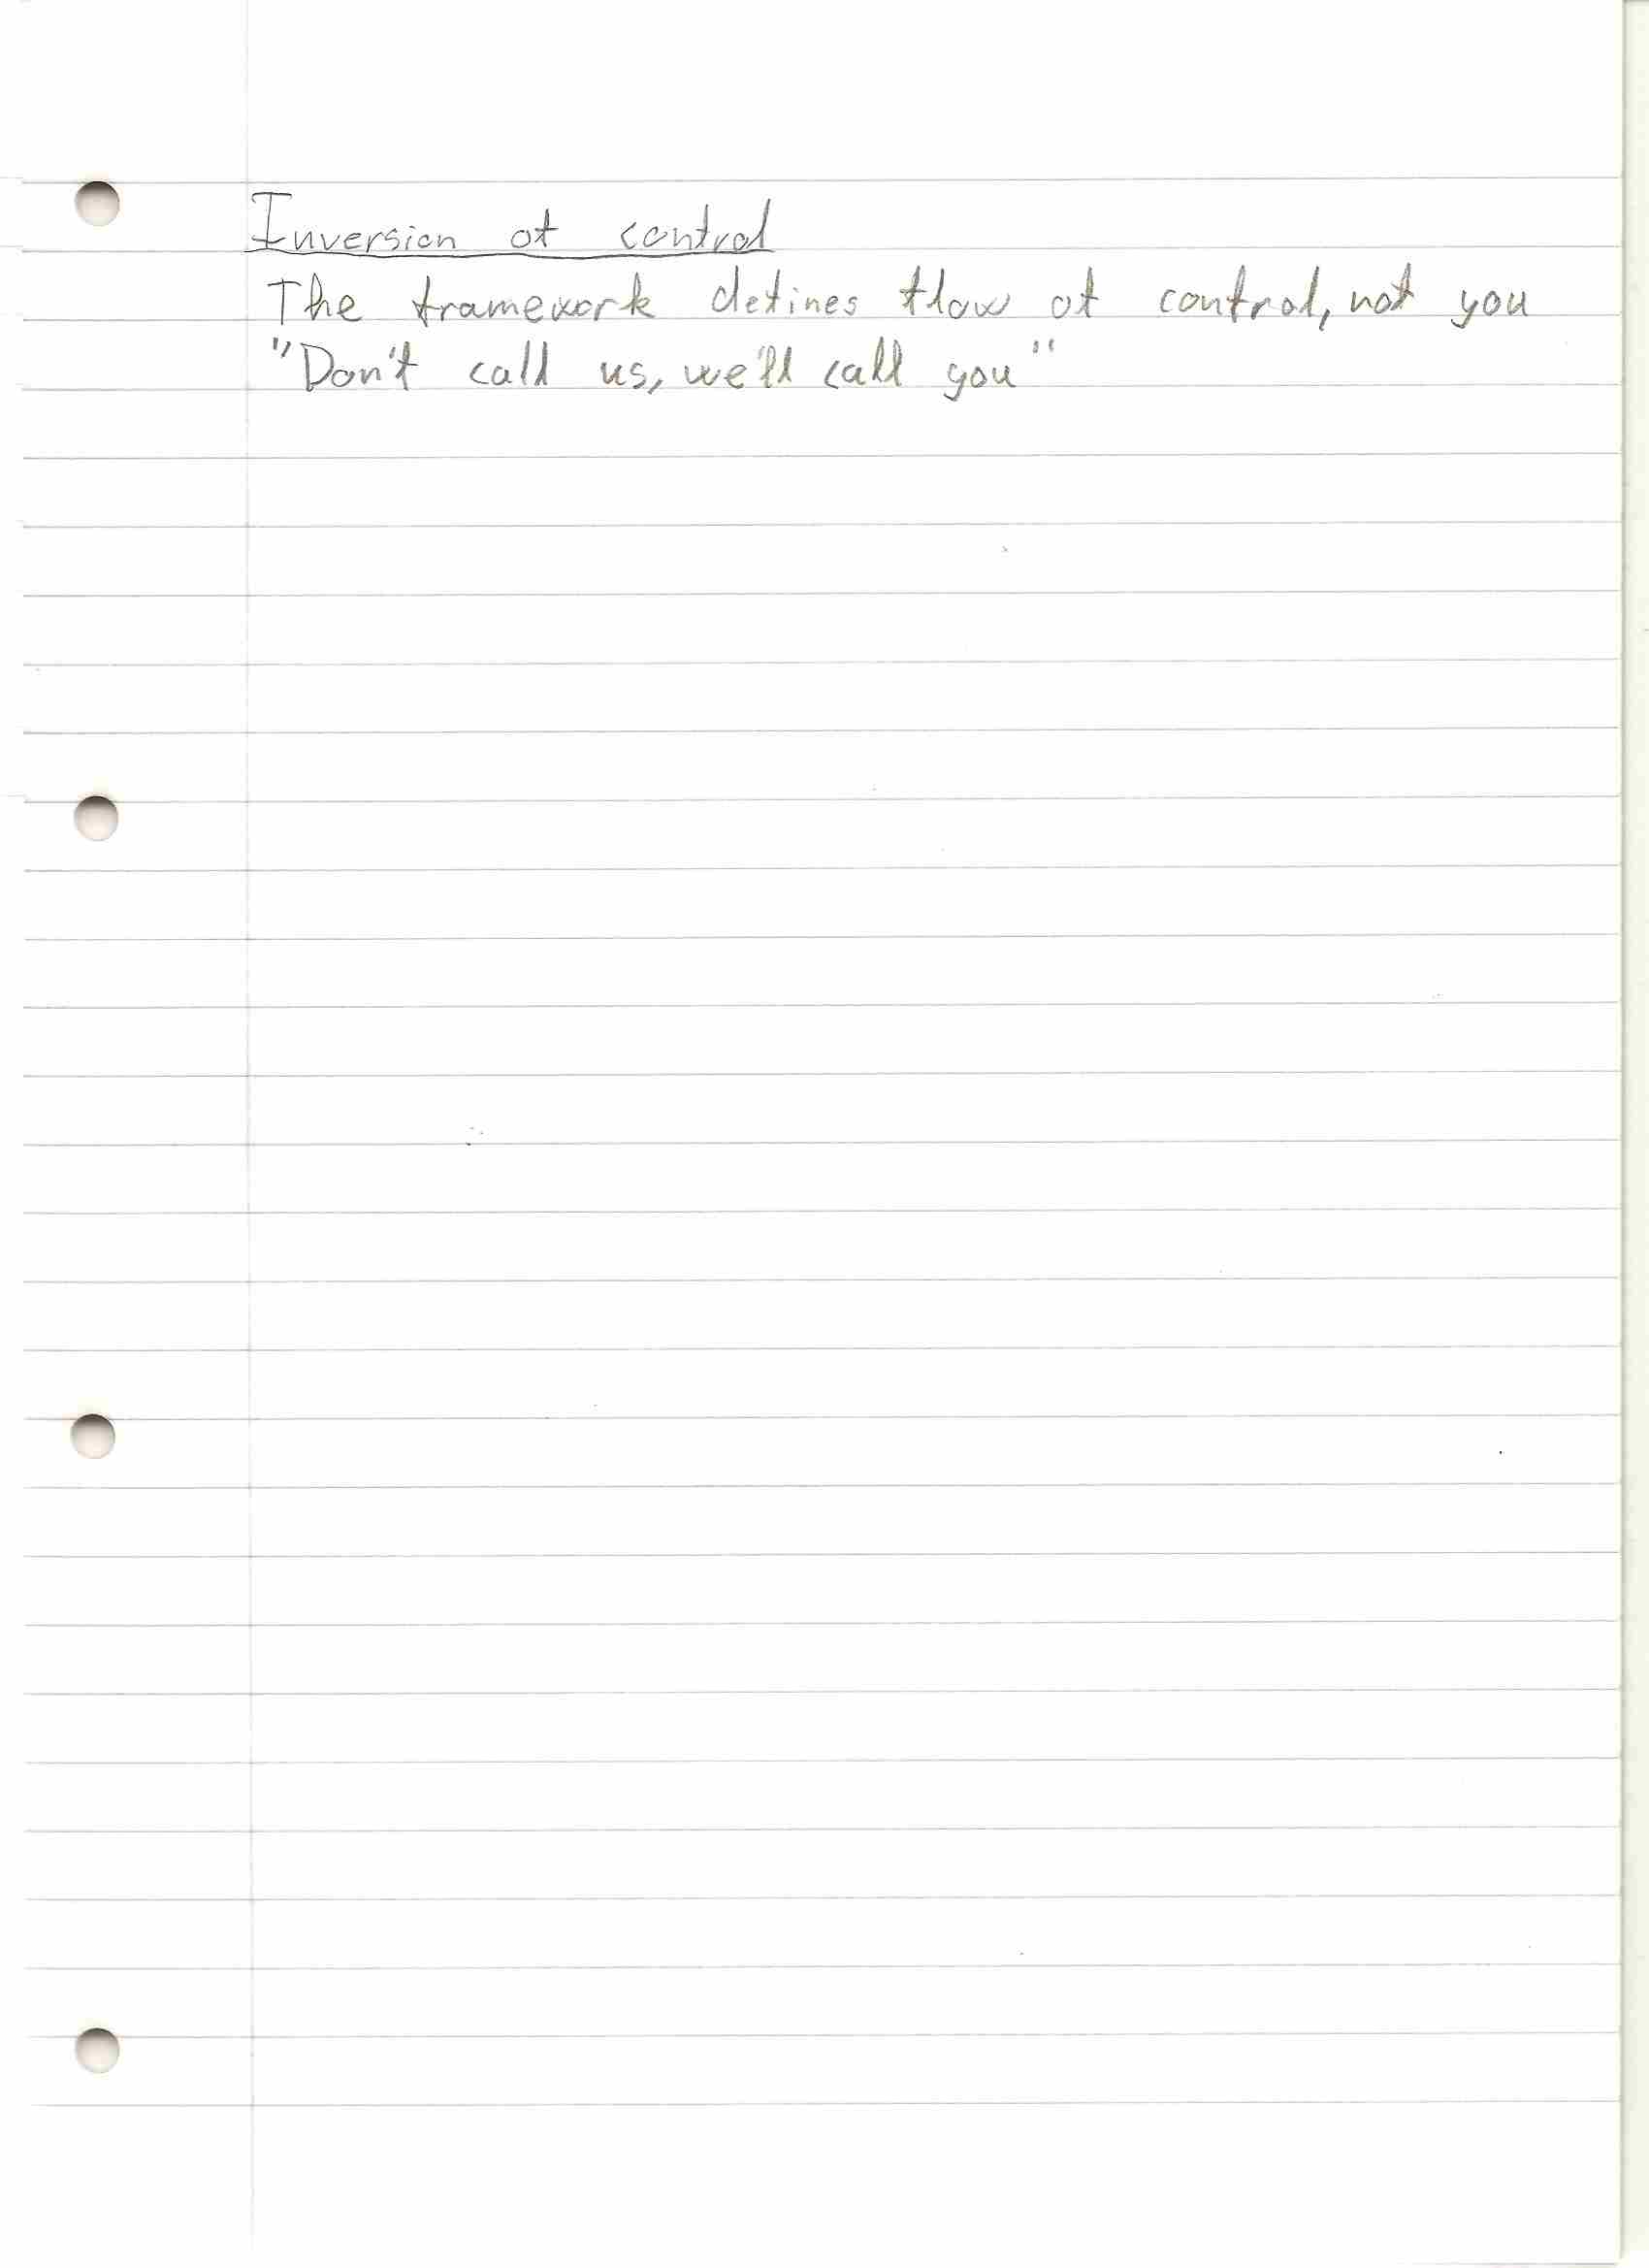 Inversion of control
The framework defines flow of control, not you
"Don't call us, we'll call you"